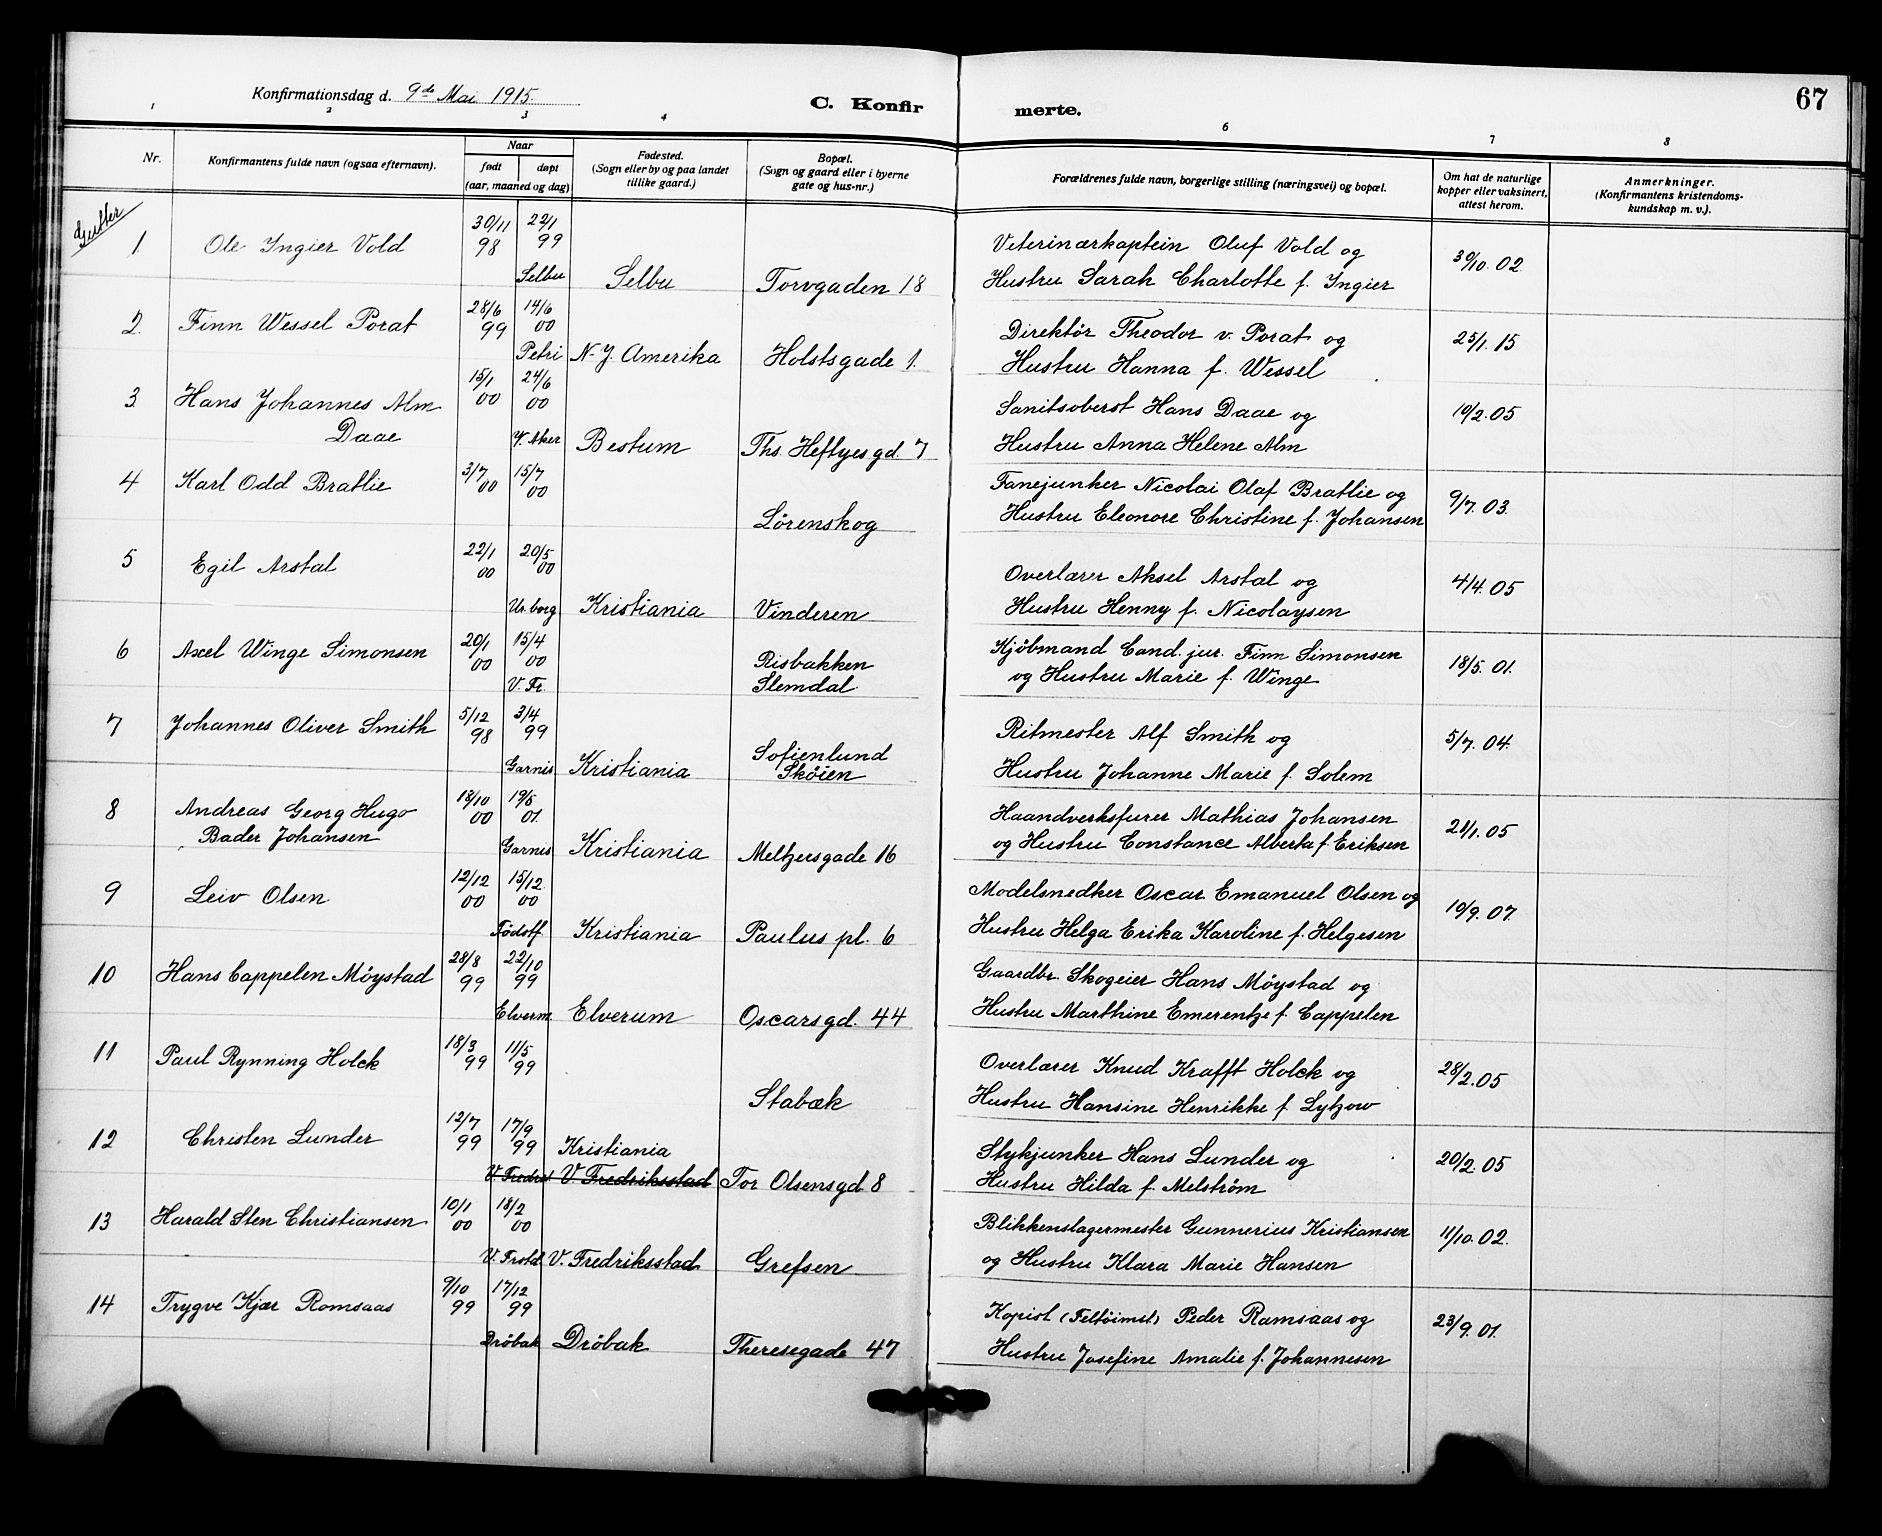 67
Konfirmationsdag d. 9de Mai 1915.
C. Konfir merte.
1 2 3 4 6 7 8
Nr.
Konfirmantens fulde navn (ogsaa efternavn).
Naar
født døpt
(aar, maaned og dag)
Fødested.
(Sogn eller by og paa landet
tillike gaard.)
Bopæl.
(Sogn og gaard eller i byerne
gate og hus-nr.)
Forældrenes fulde navn, borgerlige stilling (næringsvei) og bopæl.
Om hat de naturlige
kopper eller vaksinert,
attest herom.
Anmerkninger.
(Konfirmantens kristendoms-
kundskap m. v.).
Gutter
1 Ole Ingier Vold 30/11 98 22/1 99 Veterinærkaptein Oluf Vold og 30/10. 02
Selbu Selbu Torvgaden 18 Hustru Sarah Charlotte f. Ingier
2. Finn Wessel Porat 28/6 99 14/6 00 Direktør Theodor v. Porat og 25/1. 15
Petri N-Y. Amerika Holstsgade 1. Hustru Hanna f. Wessel
3. Hans Johannes Alm 15/1 00 24/6 00 Sanitsoberst Hans Daae og 10/2. 05
Daae V. Aker Bestum Ths. Heftyesgd. 7 Hustru Anna Helene Alm
4 Karl Odd Bratlie 3/7 00 15/7 00 Fanejunker Nicolai Olaf Bratlie og 9/7. 03.
Lörenskog Hustru Eleonore Christine f. Johansen
5 Egil Arstal 22/1 00 20/5 00 Overlærer Aksel Arstal og 4/4. 05
Ur. borg Kristiania Vinderen Hustru Henny f. Nicolaysen
6 Axel Winge Simonsen 20/1 00 15/4 00 Risbakken Kjöbmand Cand. jur. Finn Simonsen 18/5. 01.
V. Fr. Slemdal og Hustru Marie f. Winge
7 Johannes Oliver Smith 5/12 98 3/4 99 Sofienlund Ritmester Alf Smith og 5/7. 04.
Garnis Kristiania Sköien Hustru Johanne Marie f. Solem
8 Andreas Georg Hugo 18/10 00 19/5 01. Haandverksfurer Mathias Johansen 21/1. 05
Bader Johansen Garnis Kristiania Meltzersgade 16 og Hustru Constance Alberta f Eriksen
9 Leiv Olsen 12/12 00 15/12. 00 Modelsnedker Oscar Emanuel Olsen og 10/9. 07.
Födstf Kristiania Paulus pl. 6 Hustru Helga Erika Karoline f. Helgesen
10 Hans Cappelen Möystad 28/8 99 22/10 99 Gaardbr. Skogeier Hans Möystad og
Elverm. Elverum Oscarsgd. 44 Hustru Marthine Emerentze f. Cappelen
11 Paul Rynning Holck 18/3 99 11/5 99 Overlærer Knud Krafft Holck og 28/2. 05
Stabæk Hustru Hansine Henrikke f. Lytzow
12 Christen Lunder 12/7 99 17/9 99 Kristiania Stykjunker Hans Lunder og 20/2. 05
V. Fredrst V. Fredriksstad Tor Olsensgd. 8 Hustru Hilda f. Melström
13 Harald Sten Christiansen 10/1 00 18/2 00 Blikkenslagermester Gunnerius Kristiansen 11/10. 02.
V. Frstd V. Fredriksstad Grefsen og Hustru Klara Marie Hansen
14 Trygve Kjær Romsaas 9/10 99 17/12 99 Kopist (Feltöimst) Peder Ramsaas og 23/9. 01.
Dröbak Dröbak Theresegade 47 Hustru Josefine Amalie f. Johannesen